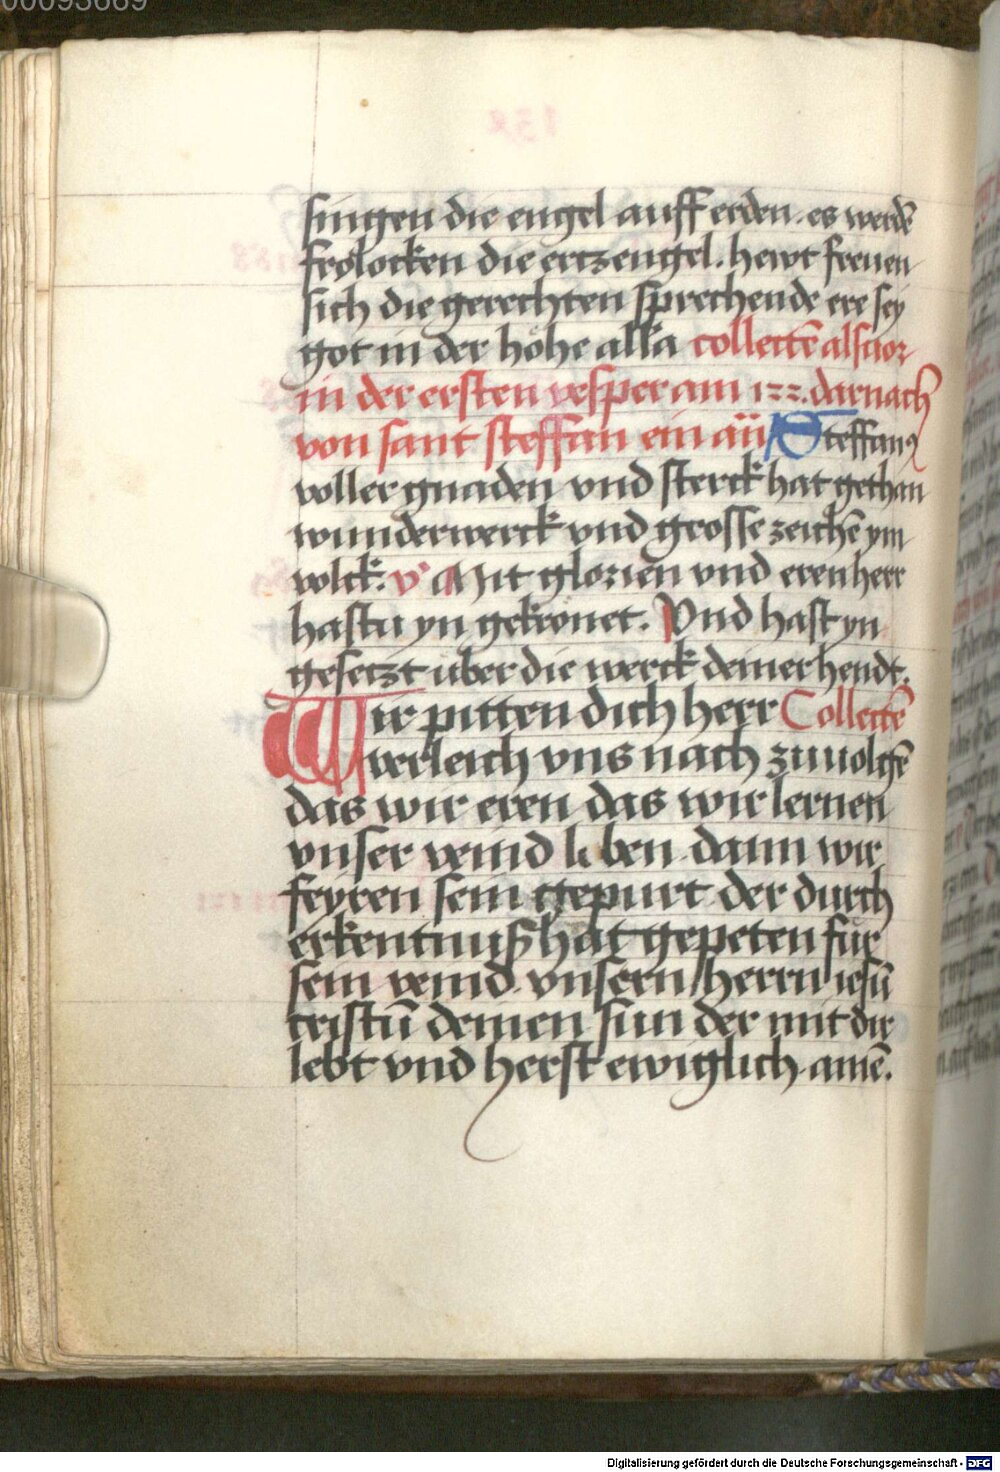 00093669
singen die engel auff erden. es werdē
frolocken die ertzengel. hewt freuen
sich die gerechten sprechende ere sey
got in der höhe alla collectē als uor
in der ersten vesper am 122. darnach
von sant steffan ein añ Steffanꝰ
voller gnaden vnd sterck hat gethan
wunderwerck vnd grosse zeichē ym
volck. v Mit glorien vnd eren herr
hastu yn gekrönet. Vnd hast yn
gesetzt über die werck deiner hendt.
Wir pitten dich herr Collectē
verleich vns nach zuuolgē
das wir eren das wir lernen
vnser veind li ben. dann wir
feyren sein gepurt der durch
erkentnuß hat gepeten für
sein veind. vnsern herrn iesū
cristū deinen sun der mit dir
lebt vnd herst ewiglich. amē.
Digitalisierung gefördert durch die Deutsche Forschungsgemeinschaft - DFG